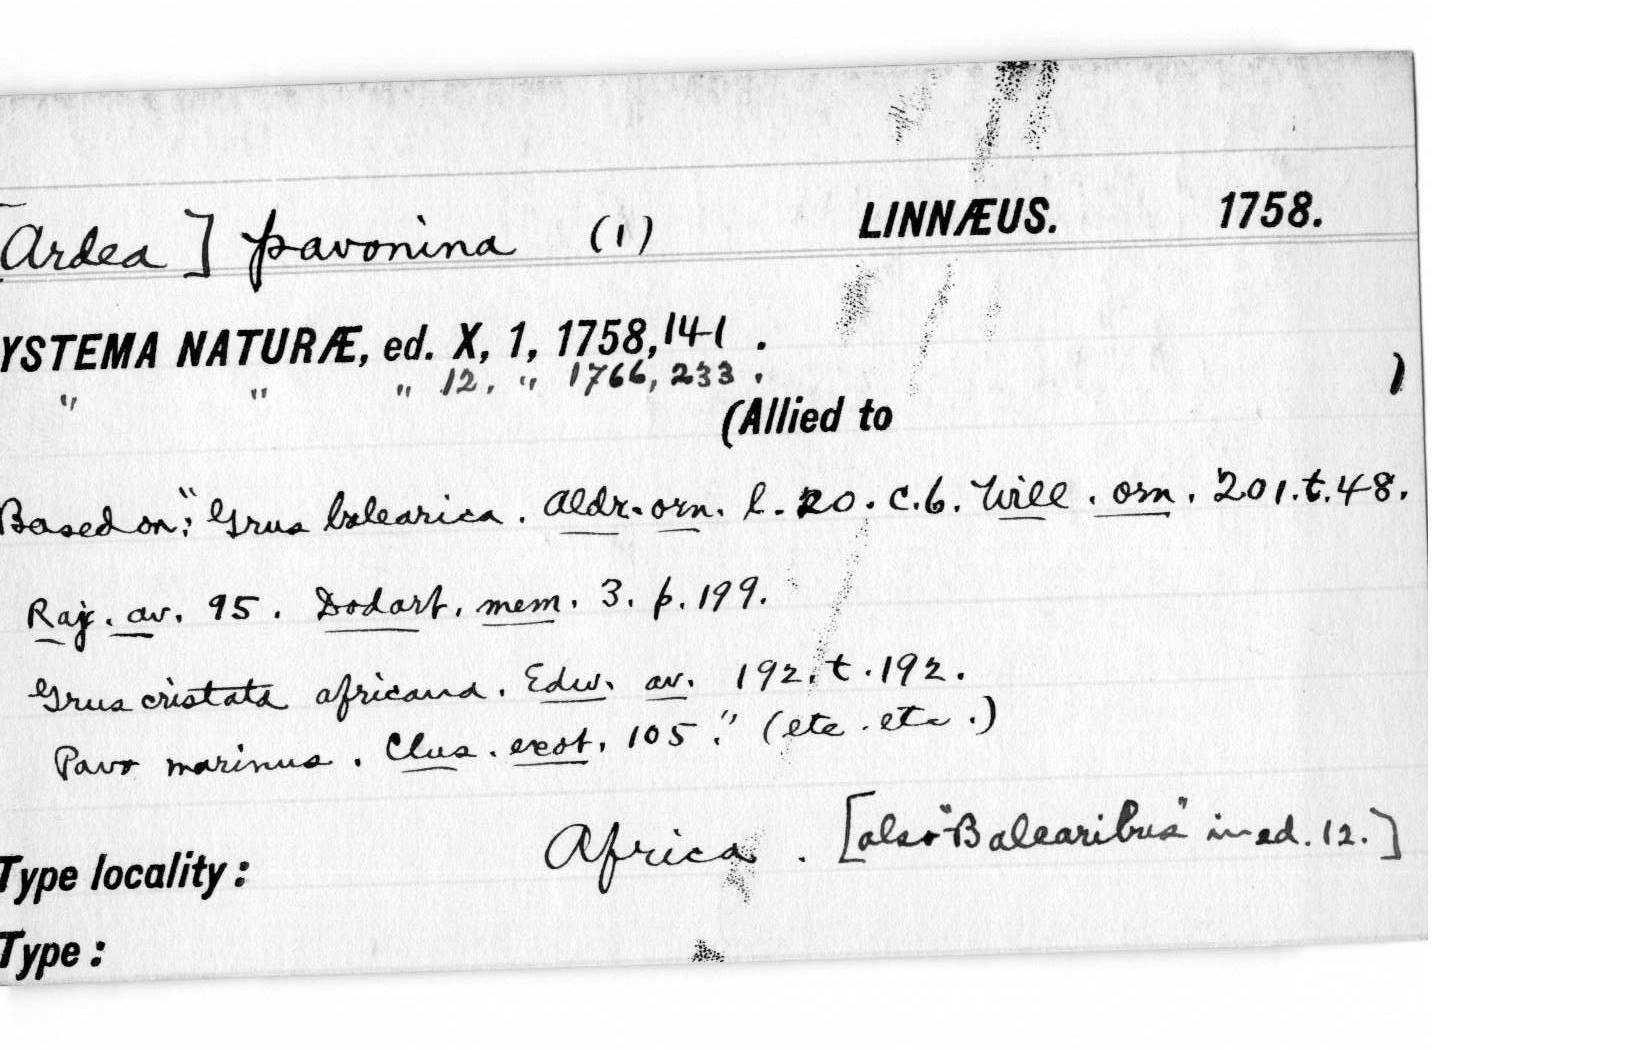 [Ardea] pavonina (1) LINNÆUS. 1758.
YSTEMA NATURÆ, ed. X, 1, 1758, 141.
" " " 12. " 1766, 233.
(Allied to )
Based on: "Grus balearica. Aldr. orn. l. 20. c. 6. Will. orn. 201. t. 48.
Raj. av. 95. Dodart. mem. 3. p. 199.
Grus cristata africana. Edw. av. 192. t. 192.
Pavo marinus. Clus. exot. 105." (etc. etc.)
Type locality: Africa. [also "Balearibus" in ed. 12.]
Type: